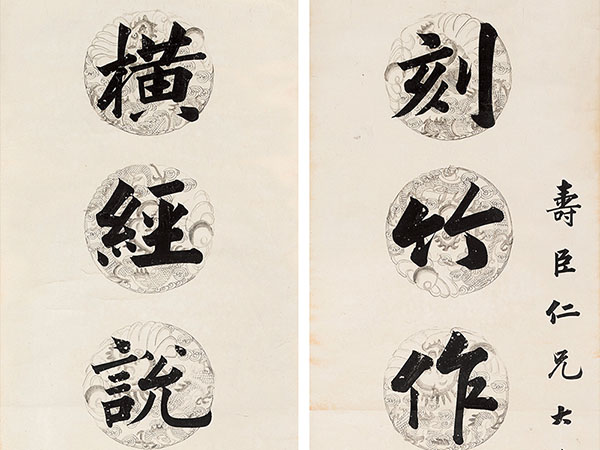 壽臣仁兄大
刻竹作
橫經說